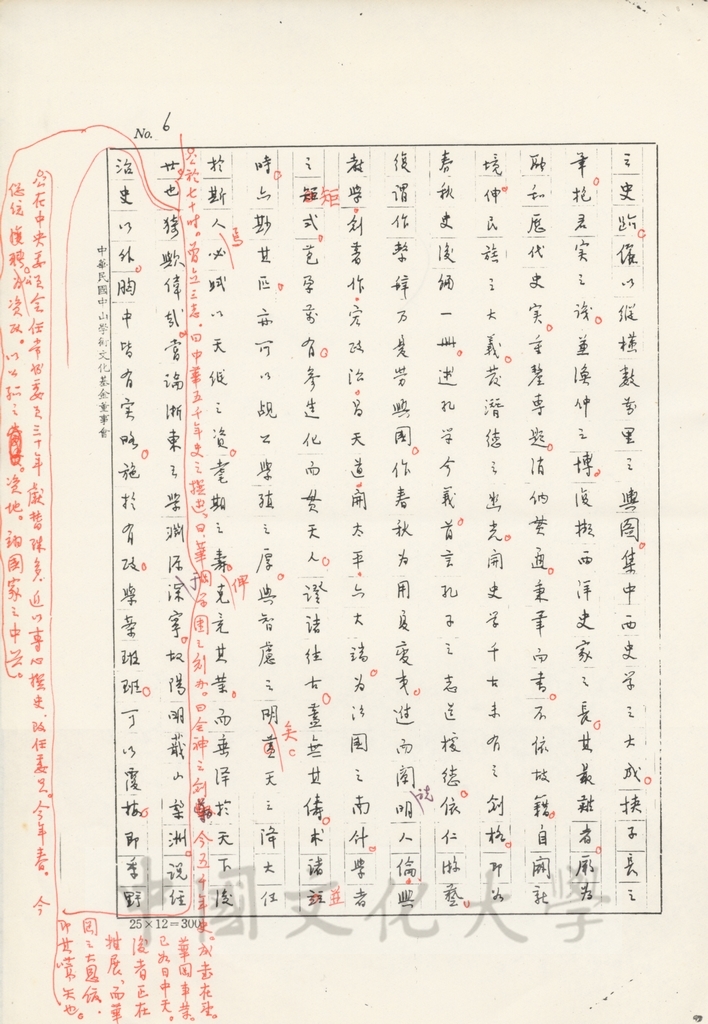 No. 6
之史蹟。僅以縱橫數萬里之輿圖。集中西史學之大成。挾子長之
筆。抱君實之識。兼漁仲之博。復擷西洋史家之長。其最難者。厥為
融和歷代史實。重釐專題。消納貫通。秉筆而書。不依故籍。自闢新
境。伸民族之大義。發潛德之幽光。開史學千古未有之創格。即以
春秋史後編一冊。述孔學今義。首言孔子之志道據德依仁游藝。
復謂作繫辭乃是勞興國。作春秋為用夏變夷。進而闡明人倫。興
教學。創著作。宏政治。昌天道。開太平。六大端。為治國之南針。學者
之矩式。苞孕萬有。參造化而貫天人。證諸往古。盡無其儔。求諸
時。亦尠其匹。亦可以覘公學殖之厚。與智慮之明矣。蓋天之降大任
於斯人。必賦以天縱之資。耄期之壽。俾克竟其業。而垂澤於天下後
世也。猗歟偉哉。嘗論浙東之學。淵源深寧。故陽明蕺山梨洲。說經
治史以外。胸中皆有實略。施於有政。犖犖班班。可以覆按。即季野
中華民國中山學術文化基金董事會
25×12=300
公於七十時。曾立三志。曰中華五千年史之撰述。曰華岡學園之創辦。曰全神之創
今五千年史。成書在望。
華岡事業。
已如日中天。
後者正在
推展。而華
岡之大恩館。
即其嚆矢也。
公在中央委員會任常務委員三十年。獻替殊多。近以專心撰史。改任委員。今年春。
總統復聘為資政。
中國文化大學